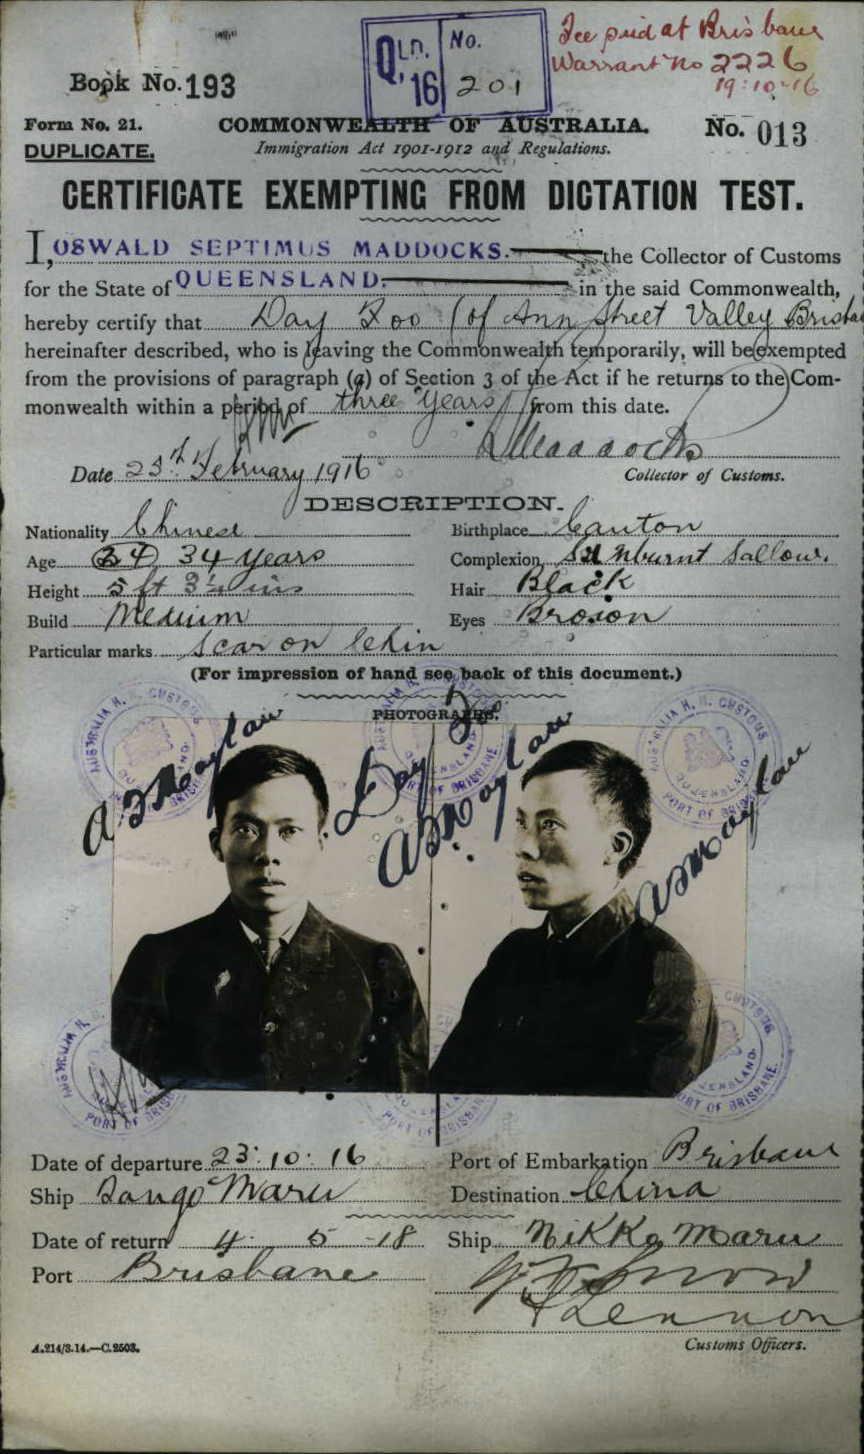 QLD. No.
'16 201
Fee paid at Brisbane
Warrant No 2226
19:10:16
Book No. 193
Form No. 21. COMMONWEALTH OF AUSTRALIA. No. 013
DUPLICATE. Immigration Act 1901-1912 and Regulations.
CERTIFICATE EXEMPTING FROM DICTATION TEST.
I, OSWALD SEPTIMUS MADDOCKS. the Collector of Customs
for the State of QUEENSLAND. in the said Commonwealth,
hereby certify that Day Foo (of Ann Street Valley Brisba
hereinafter described, who is leaving the Commonwealth temporarily, will be exempted
from the provisions of paragraph (a) of Section 3 of the Act if he returns to the Com-
monwealth within a period of three years from this date.
Maddocks
Date 23rd February 1916 Collector of Customs.
DESCRIPTION.
Nationality Chinese Birthplace Canton
Age 34 34 years Complexion Sunburnt Sallow.
Height 5 ft 3¼ ins Hair Black
Build Medium Eyes Brown
Particular marks Scar on Chin
(For impression of hand see back of this document.)
PHOTOGRAPHS.
Day Foo
AUSTRALIA H. M. CUSTOMS
QUEENSLAND.
PORT OF BRISBANE
Date of departure 23:10:16 Port of Embarkation Brisbane
Ship Tango Maru Destination China
Date of return 4 5 -18 Ship Nikko Maru
Port Brisbane
Lennon
A.214/3.14.—C.2503. Customs Officers.